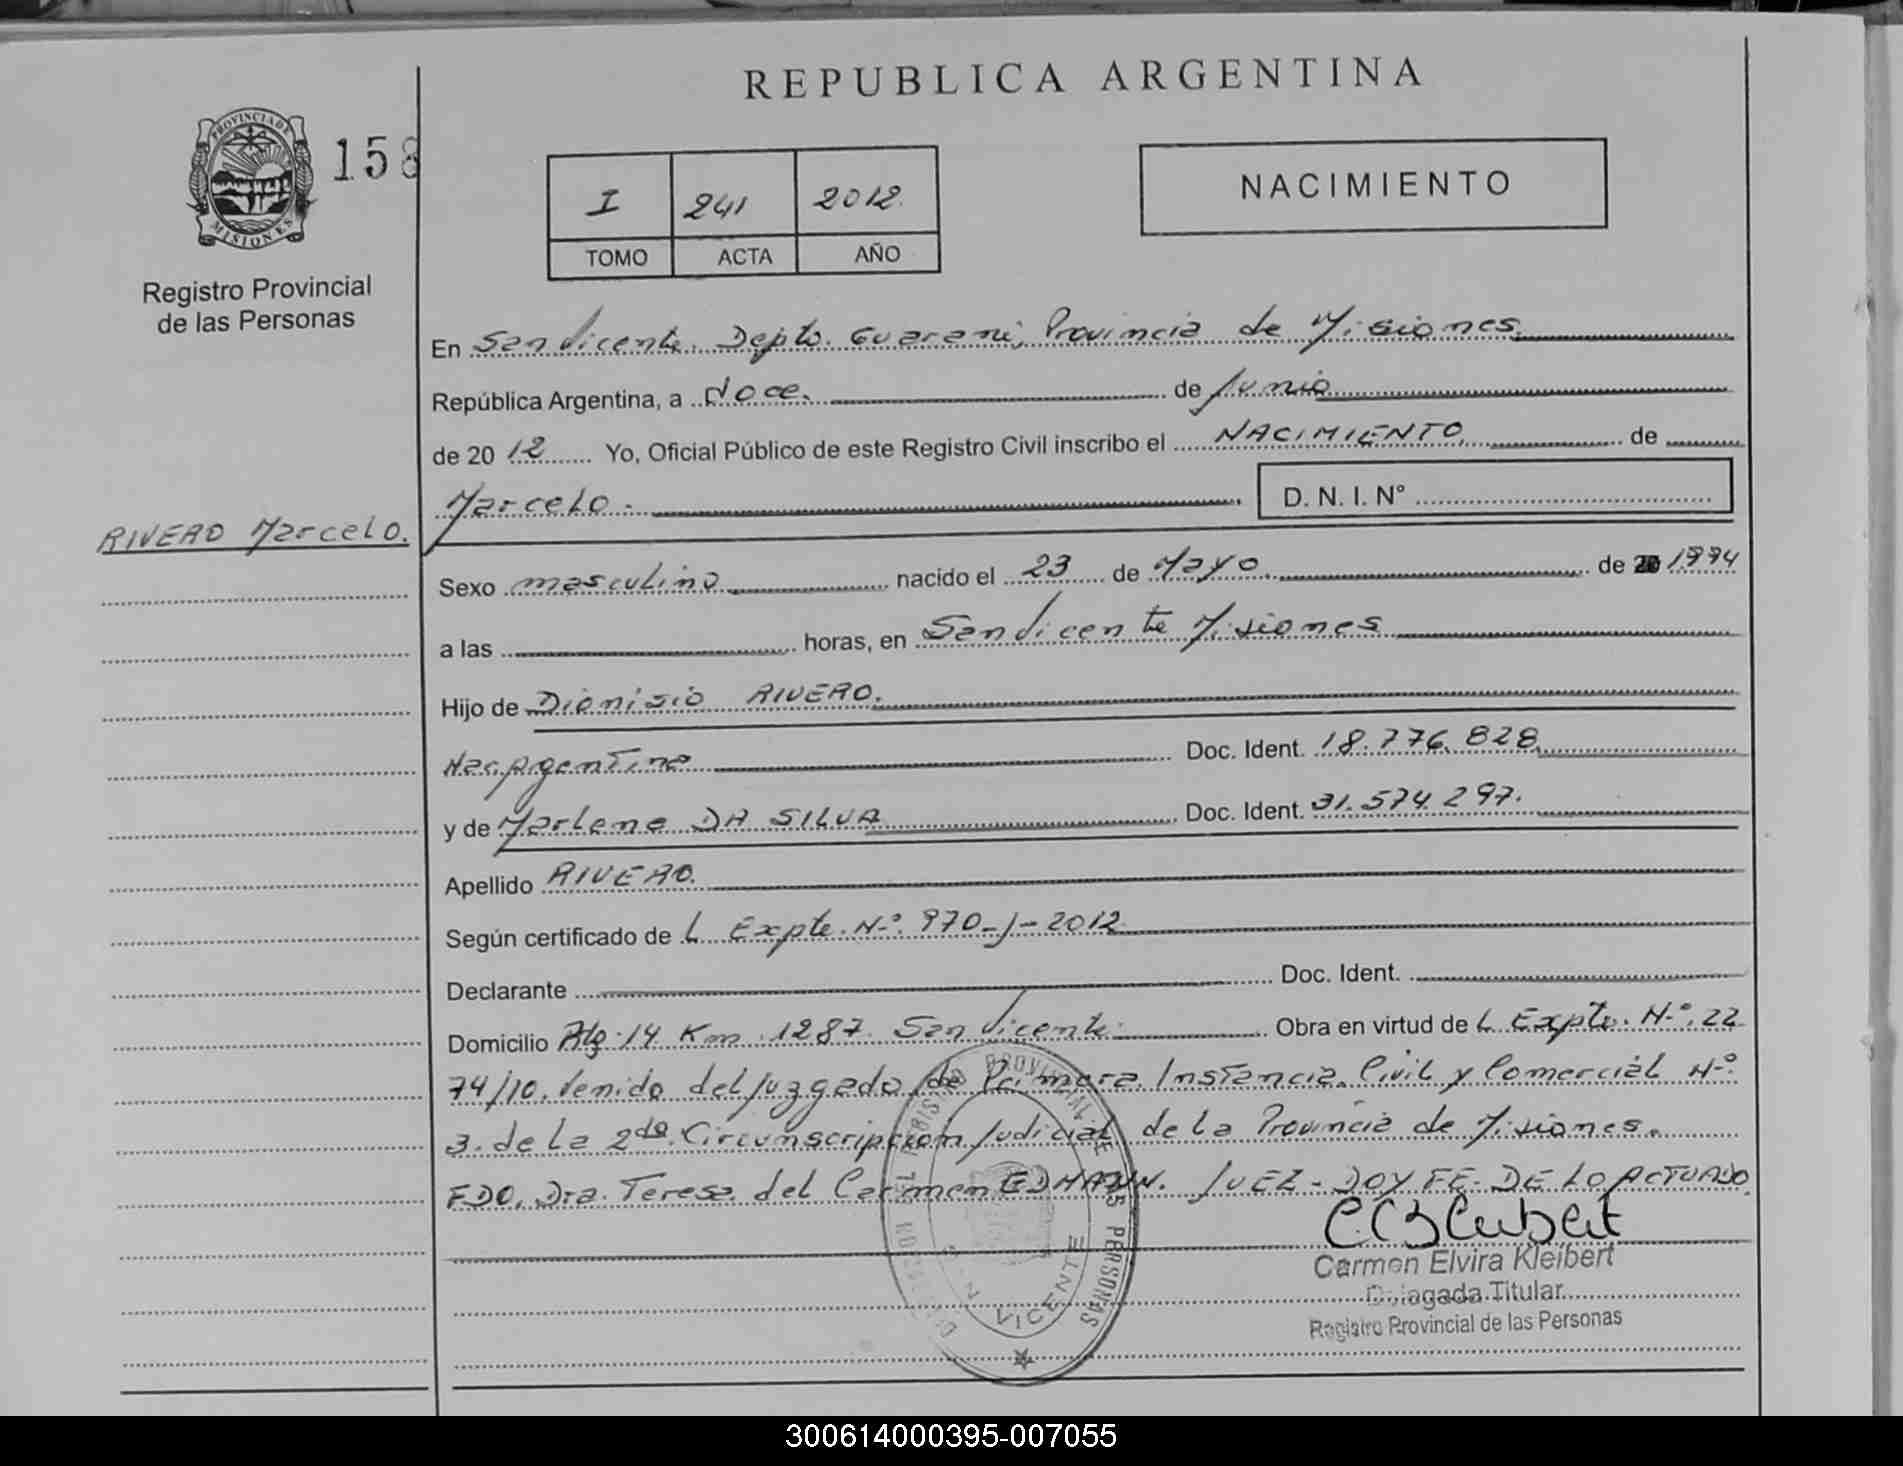 REPUBLICA ARGENTINA
PROVINCIA DE
MISIONES
158
Registro Provincial
de las Personas
I 241 2012.
TOMO ACTA AÑO
NACIMIENTO
En San Vicente. Depto. Guarani, Provincia de Misiones.
República Argentina, a doce. de Junio
de 2012 Yo, Oficial Público de este Registro Civil inscribo el NACIMIENTO de
Marcelo.- D. N. I. N°
RIVERO Marcelo.
Sexo masculino nacido el 23 de Mayo. de 1994
a las horas, en San Vicente Misiones
Hijo de Dionisio RIVERO.
Nac. Argentina Doc. Ident. 18.776.828
y de Marlene DA SILVA Doc. Ident. 31.574.297.
Apellido RIVERO.
Según certificado de L Expte. N-º. 970-J-2012
Declarante Doc. Ident.
Domicilio 14 Km. 1287. San Vicente. Obra en virtud de L Expte. N-º. 22
74/10. Venido del Juzgado de Primera Instancia. Civil y Comercial N-º
3. de La 2da. Circunscripcion Judicial de La Provincia de Misiones.
FDO. Dra. Teresa del Carmen EDMANN. JUEZ - DOY FE - DE LO ACTUADO.
REGISTRO PROVINCIAL DE LAS PERSONAS
SAN VICENTE
Carmen Elvira Kleibert
Delegada Titular
Registro Provincial de las Personas
300614000395-007055